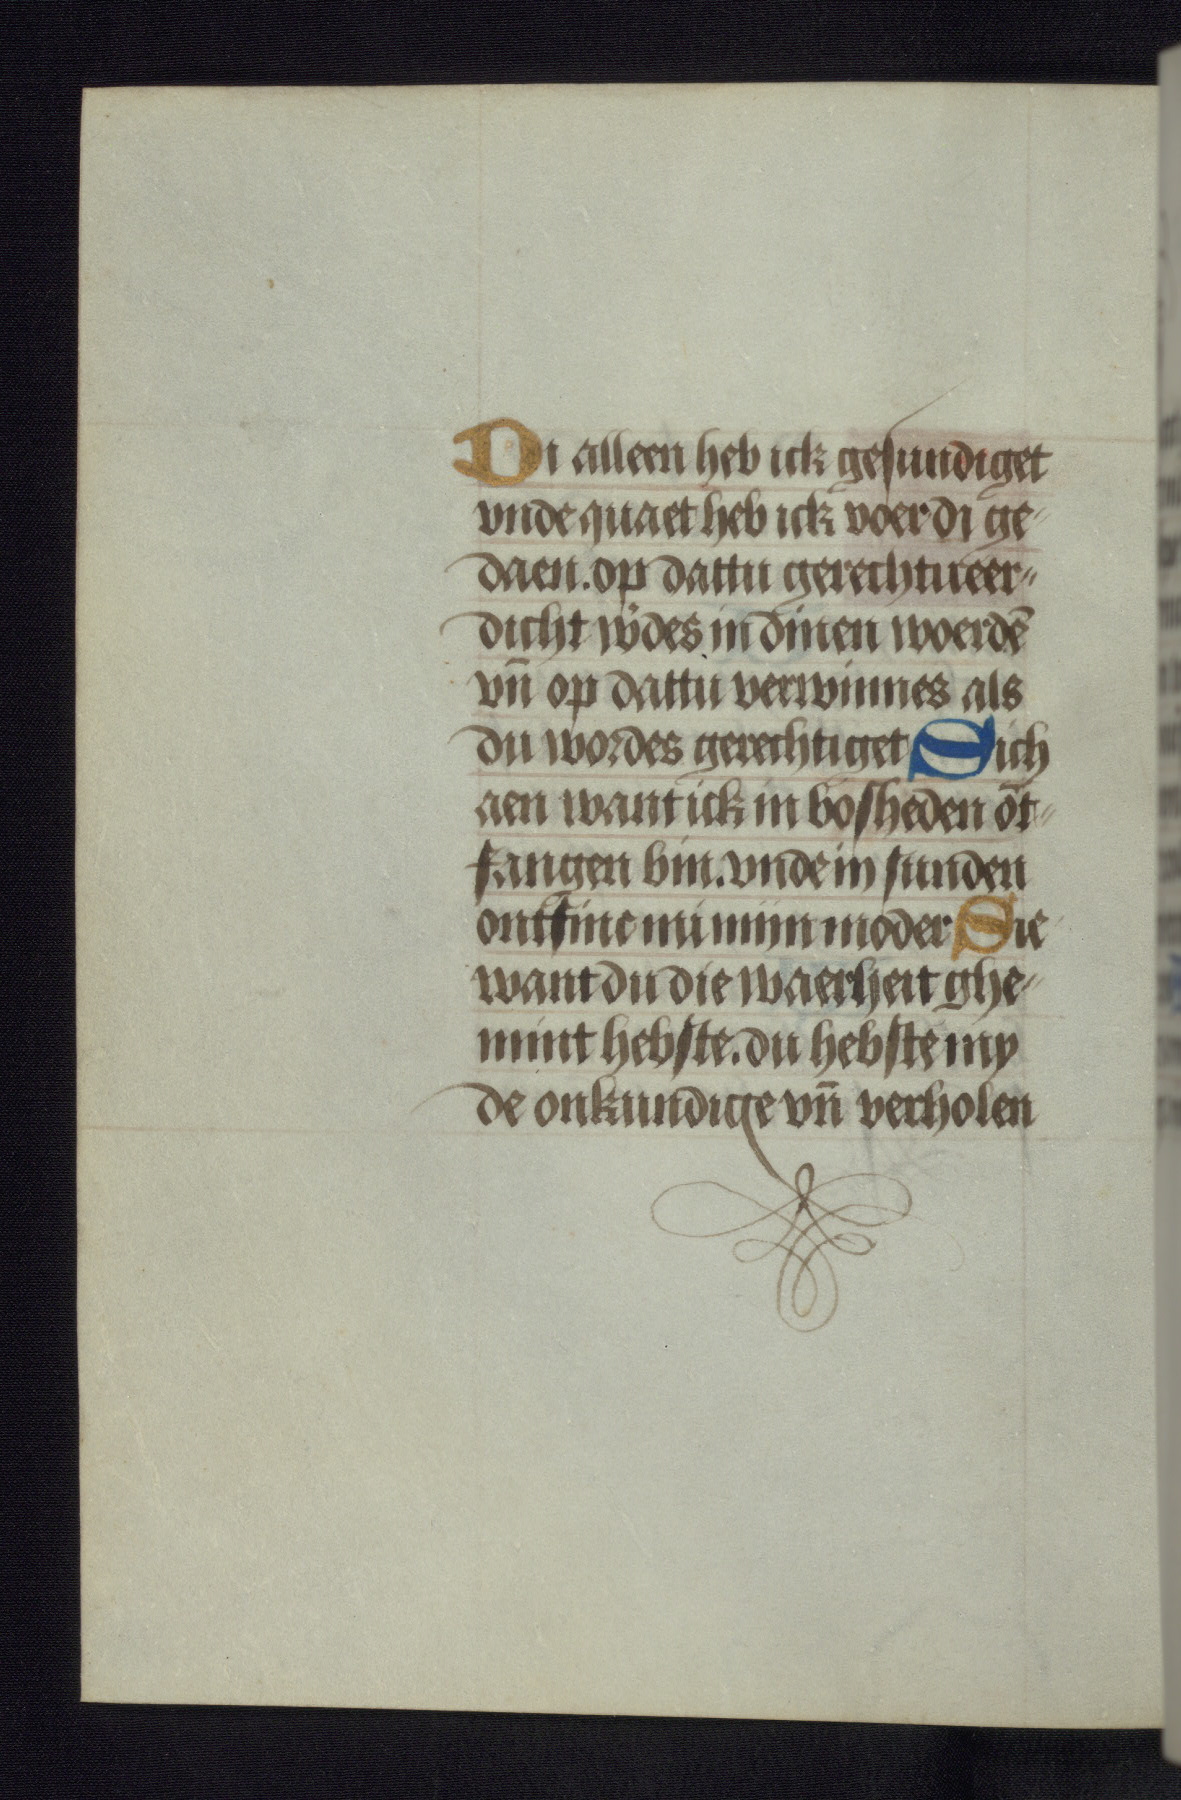 Di alleen heb ick gesundiget
vnde quaet heb ick voer di ge-
daen. op dattu gerechtueer-
dicht w'des in dinen woerdē
vn̄ op dattu verwinnes als
du wordes gerechtiget Sich
aen want ick in bosheden ōt-
fangen bin. vnde in sunden
ontfinc mi mijn moder Sie
want du die waerheit ghe-
mint hebste. du hebste my
de onkundige vn̄ verholen